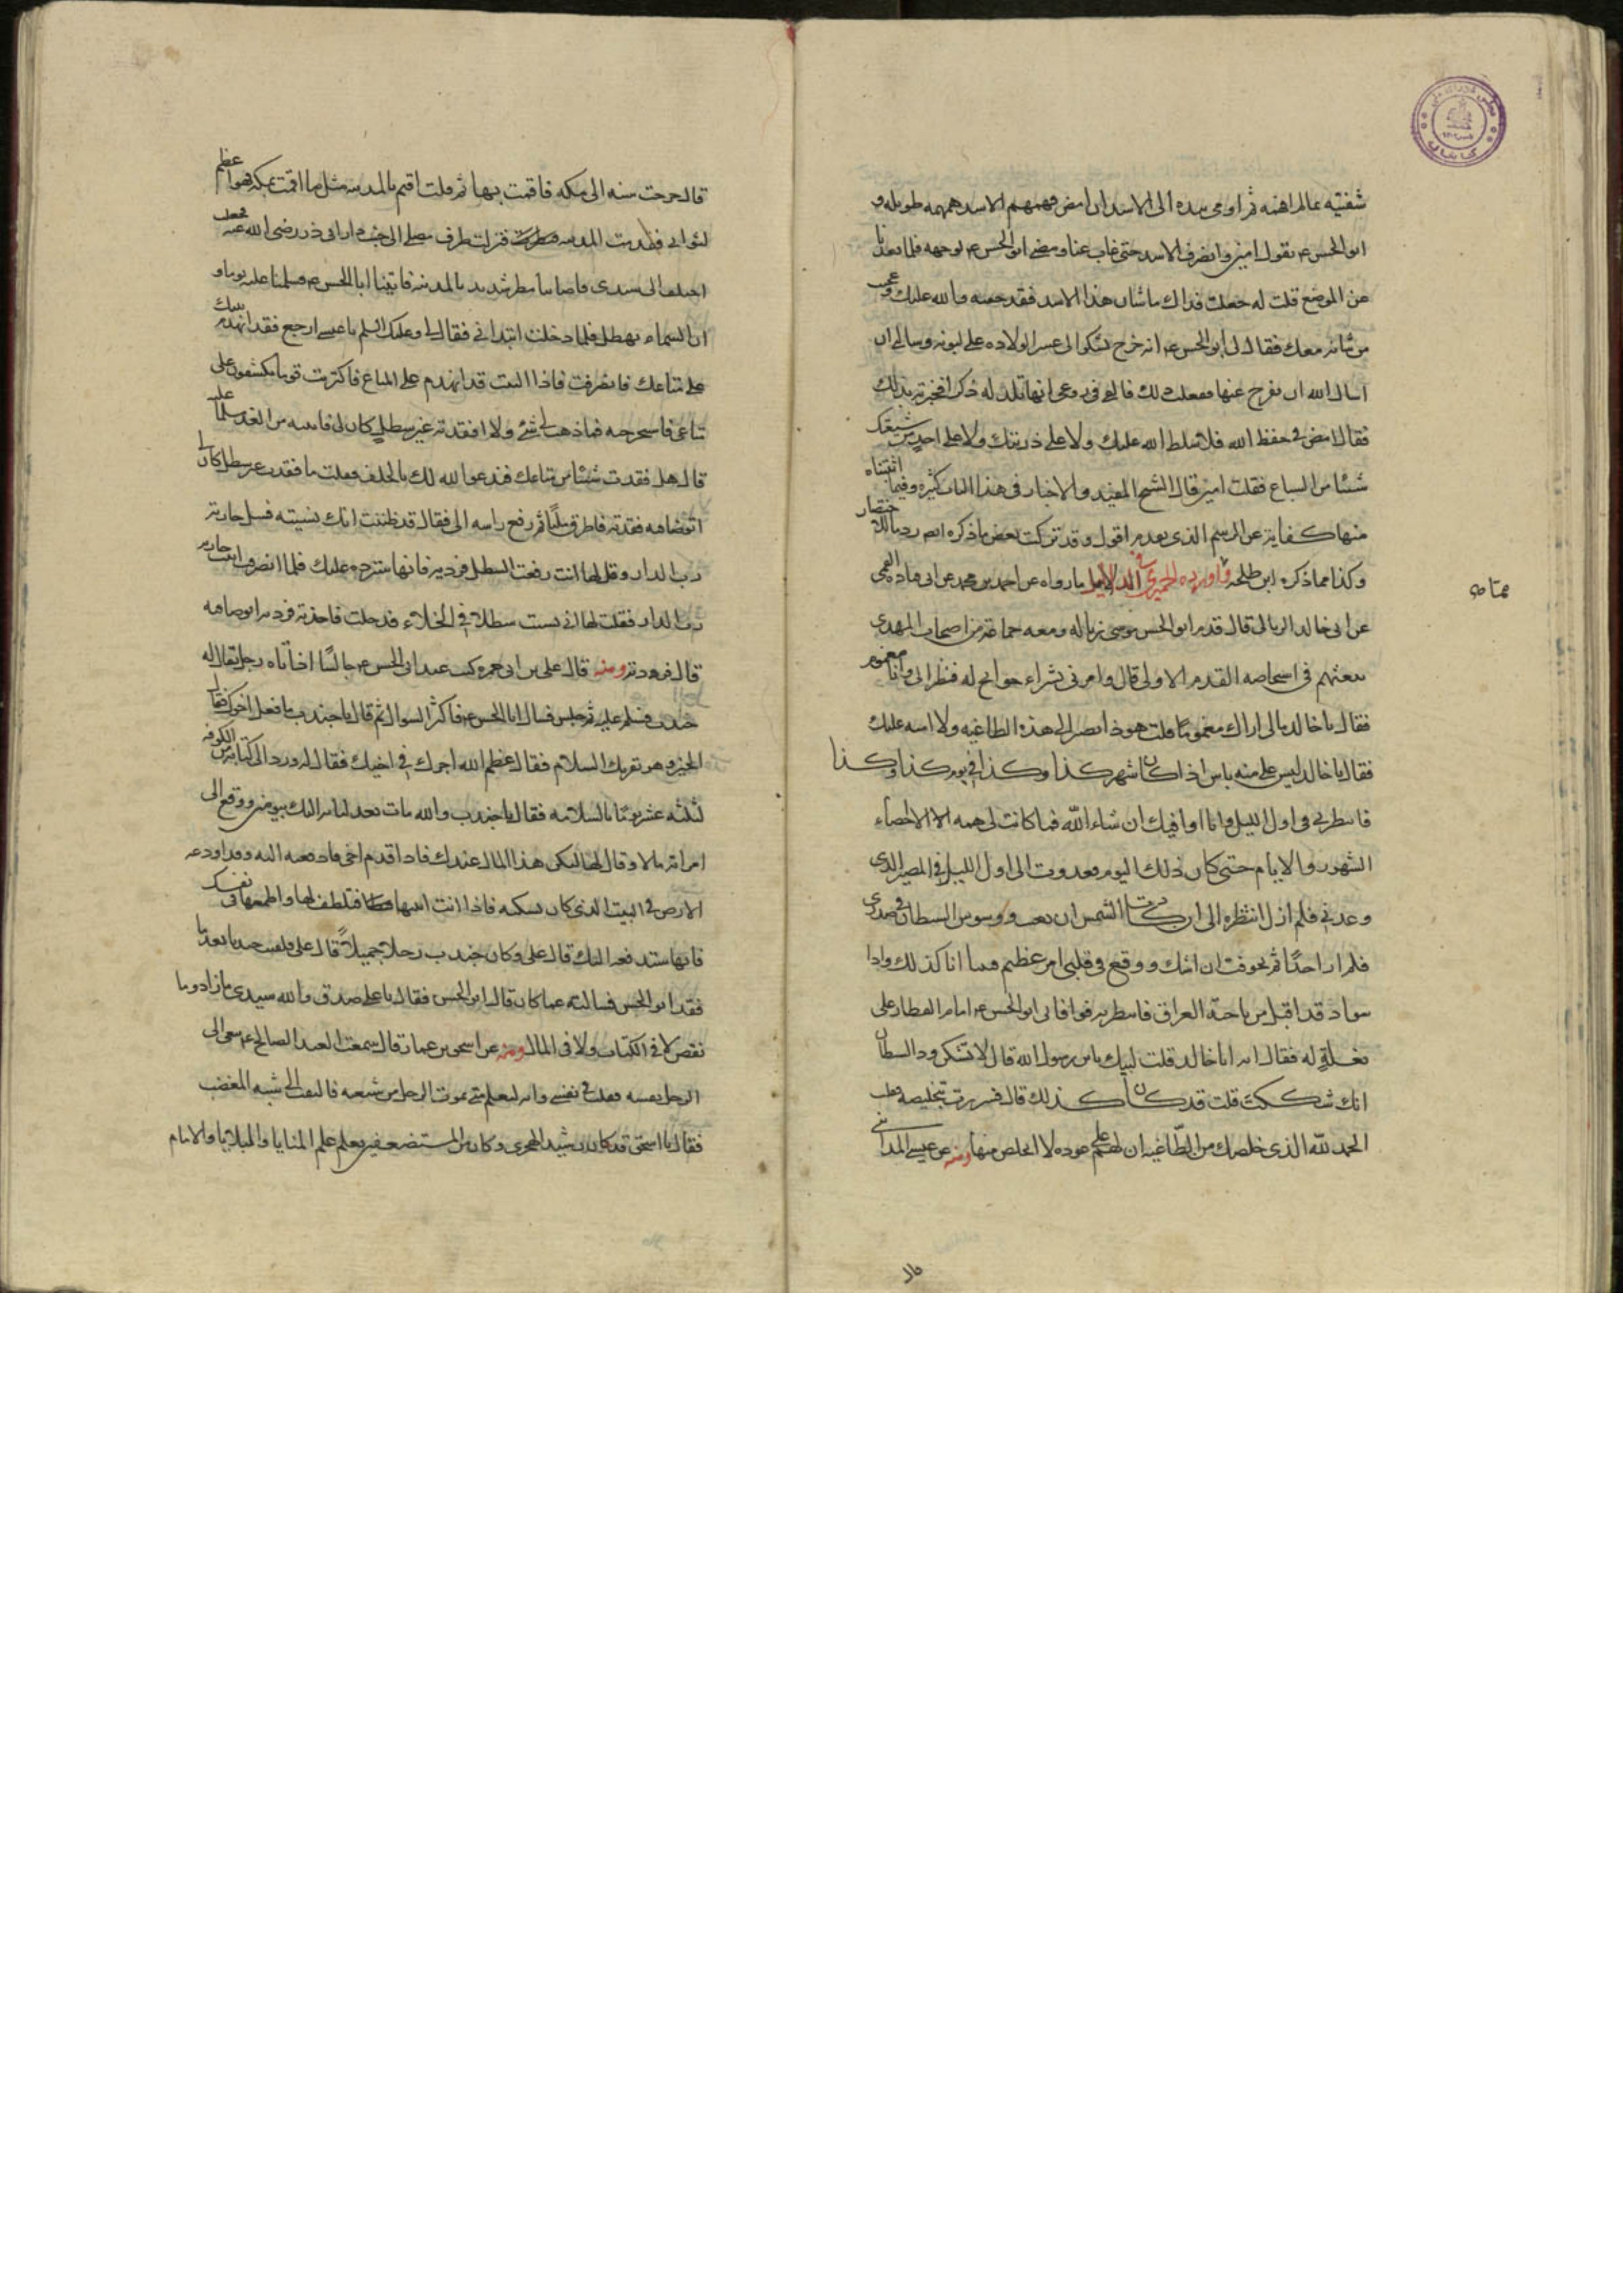 شفتيه بمالم افهمه ثم اومى بيده الى الاسد ان امض فهمهم الاسد همهمه طويله و
ابو الحسن ع يقول امين وانصرف الاسد حتى غاب عنا ومضى ابو الحسن ع لوجهه فلما بعدنا
عن الموضع قلت له جعلت فداك ما شان هذا الاسد فقد خفته والله عليك وعجبت
من شانه معك فقال لى ابو الحسن ع انه خرج يشكوا الى عسر الولاده على لبوته وسالنى ان
اسال الله ان يفرج عنها ففعلت ذلك فالقى فى روعى انها تلد له ذكرا فخبرته بذلك
فقال امض فى حفظ الله فلا سلط الله عليك ولا على ذريتك ولا على احد من شيعتك
شيئا من السباع فقلت امين قال الشيخ المفيد والاخبار فى هذا الباب كثيره وفيما اثبتناه
منها كفاية عن الرسم الذى تقدم اقول وقد تركت بعض ما ذكره اختصار
وكذا مما ذكره ابن طلحه واورده الحميرى فى الدلايل ما رواه عن احمد بن محمد عن ابى قتاده القمى
عن ابى خالد الزبالى قال قدم ابو الحسن موسى زباله ومعه جماعة من اصحاب المهدى
بعثهم فى اشخاصه القدمه الاولى قال وامرنى بشراء حوائج له فنظر الى وانا مغموم
فقال يا خالد مالى اراك مغموما قلت هو ذا تصير الى هذه الطاغيه ولا امنه عليك
فقال يا خالد ليس على منه باس اذا كان شهر كذا وكذا فى يوم كذا وكذا
فانتظرنى فى اول الليل فانا اوافيك ان شاء الله فما كانت لى همه الا الاحصاء
الشهور والايام حتى كان ذلك اليوم فغدوت الى اول الليل فى المصير الذى
وعدنى فلم ازل انتظره الى ان كادت الشمس ان تغيب ووسوس الشيطان فى صدرى
فلم ار احدا ثم تخوفت ان اشك ووقع فى قلبى امر عظيم فبينا انا كذلك واذا
سواد قد اقبل من ناحية العراق فانتظرته فوافانى ابو الحسن ع امام القطار على
بغلة له فقال ايه ابا خالد قلت لبيك يابن رسول الله قال لا تشكن ود الشيطان
انك شككت قلت قد كان كذلك قال فسررت بتخليصه وقلت
الحمد لله الذى خلصك من الطاغيه ان لهم على عوده لا اتخلص منها ومنه عن عيسى المدائنى
قال خرجت سنه الى مكه فاقمت بها ثم قلت اقيم بالمدينه مثل ما اقمت بمكه فهو اعظم
لثوابى فقدمت المدينه فنزلت طرف مصلى الى جنب دار ابى ذر رضى الله عنه فجعلت
اختلف الى سيدى فاصابنا مطر شديد بالمدينه فاتينا ابا الحسن ع فسلمنا عليه يوما و
ان السماء تهطل فلما دخلت ابتدانى فقال لى وعليك السلم يا عيسى ارجع فقد انهدم بيتك
على متاعك فانصرفت فاذا البيت قد انهدم على المتاع فاكتريت قوما يكشفون على
متاعى فاستخرجته فما ذهب لى شئ ولا افتقدته غير سطل كان لى فاتيته من الغد مسلما عليه
قال هل فقدت شيئا من متاعك فندعوا لله لك بالخلف فقلت ما فقدت غير سطل كان لى
اتوضا فيه فقدته فاطرق مليا ثم رفع راسه الى فقال قد ظننت انك نسيته فسل جارية
رب الدار وقل لها انت رفعت السطل فرديه فانها سترده عليك فلما انصرفت اتيت جاريه
رب الدار فقلت لها انى نسيت سطلا فى الخلاء فدخلت فاخذته فرديه اتوضا فيه
قال فردته ومنه قال على بن ابى حمزه كنت عند ابى الحسن ع جالسا اذا اتاه رجل يقال له
جندب فسلم عليه ثم جلس فسال ابا الحسن ع فاكثر السوال ثم قال يا جندب ما فعل اخوك فقال
الخير وهو يقريك السلام فقال اعظم الله اجرك فى اخيك فقال له ورد الى كتابه من الكوفه
لثلثه عشر يوما بالسلامه فقال يا جندب والله مات بعد كتابه اليك بيومين ووقع الى
امراته مالا وقال لها ليكن هذا المال عندك فاذا قدم اخى فادفعيه اليه وقد اودعه
الارض فى البيت الذى كان يسكنه فاذا انت اتيتها فتلطف لها واطمعها فى نفسك
فانها ستدفعه اليك قال على وكان جندب رجلا جميلا قال على فلقيت جندبا بعدما
فقد ابو الحسن فسالته عما كان قال ابو الحسن فقال يا على صدق والله سيدى ما زاد وما
نقص لا فى الكتاب ولا فى المال ومنه عن اسحق بن عمار قال سمعت العبد الصالح ع ينعى الى
الرجل نفسه فقلت فى نفسى وانه ليعلم متى يموت الرجل من شيعته فالتفت الى شبه المغضب
فقال يا اسحق قد كان رشيد الهجرى وكان من المستضعفين يعلم علم المنايا والبلايا والامام